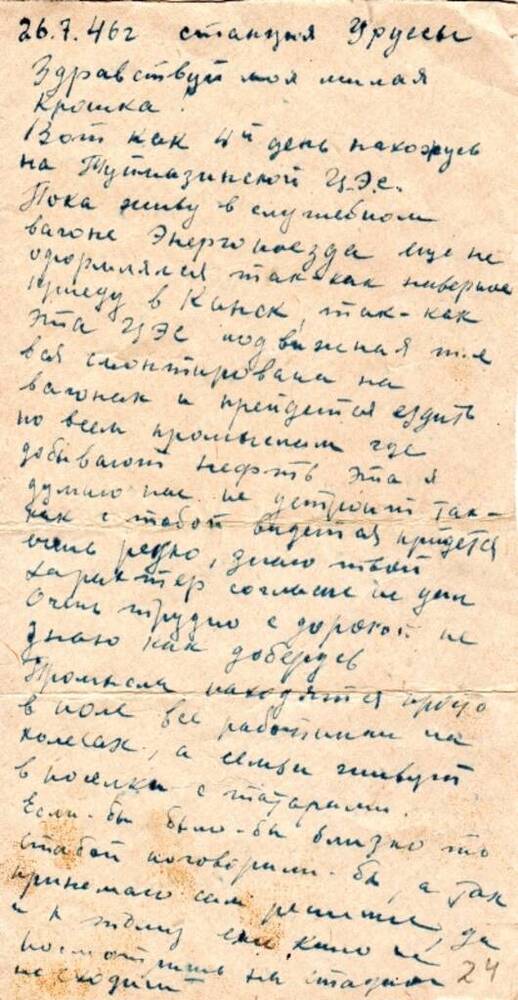 26.7.46г станция Уруссы
Здравствуй моя милая
крошка!
Вот как 4й день нахожусь
на Туймазинской Ц.Э.С.
Пока живу в служебном
вагоне Энергопоезда еще не
оформлялся так-как наверное
приеду в Канск, так-как
эта ЦЭС подвижная
вся смонтирована на
вагонах и прейдется ездить
по всем промыслам где
добывают нефть. Эта я
думаю нас не устроит так-
как с тобой видется придется
очень редко, зная твой
характер согласие не дам
Очень трудно с дорогой не
знаю как доберусь
Промысла находятся просто
в поле все работники на
колесах, а семьи живут
в поселки с татарами.
Если-бы было-бы близко то
с табой поговорили-бы, а так
принемаю сам решение, да
и к тому кино не
посмотришь на стадион 24
не сходиш